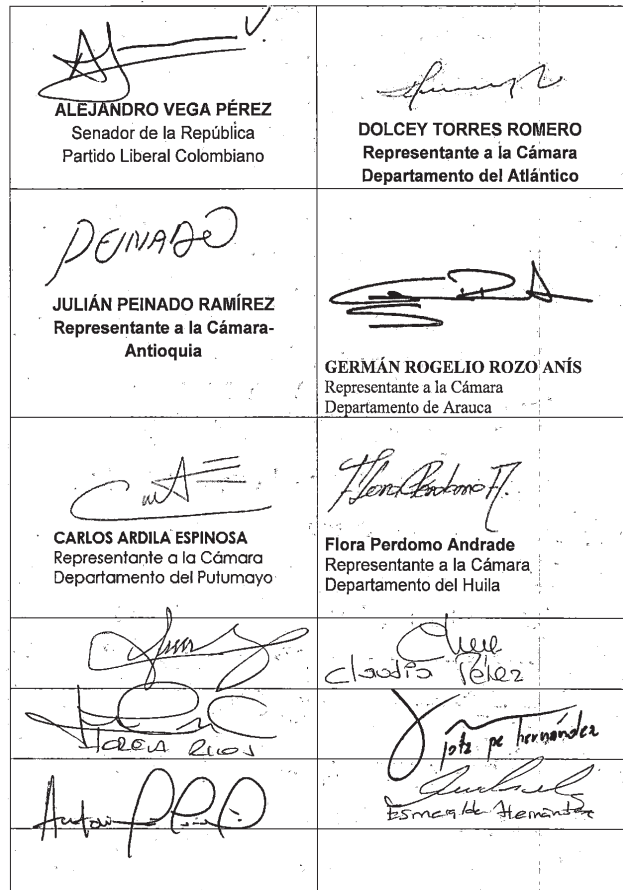 ALEJANDRO VEGA PÉREZ
Senador de la República
Partido Liberal Colombiano
DOLCEY TORRES ROMERO
Representante a la Cámara
Departamento del Atlántico
PEINADO
JULIÁN PEINADO RAMÍREZ
Representante a la Cámara-
Antioquia
GERMÁN ROGELIO ROZO ANÍS
Representante a la Cámara
Departamento de Arauca
CARLOS ARDILA ESPINOSA
Representante a la Cámara
Departamento del Putumayo
Flora Perdomo A.
Flora Perdomo Andrade
Representante a la Cámara
Departamento del Huila
Claudia Pérez
jota pe hernández
Esmeralda Hernández